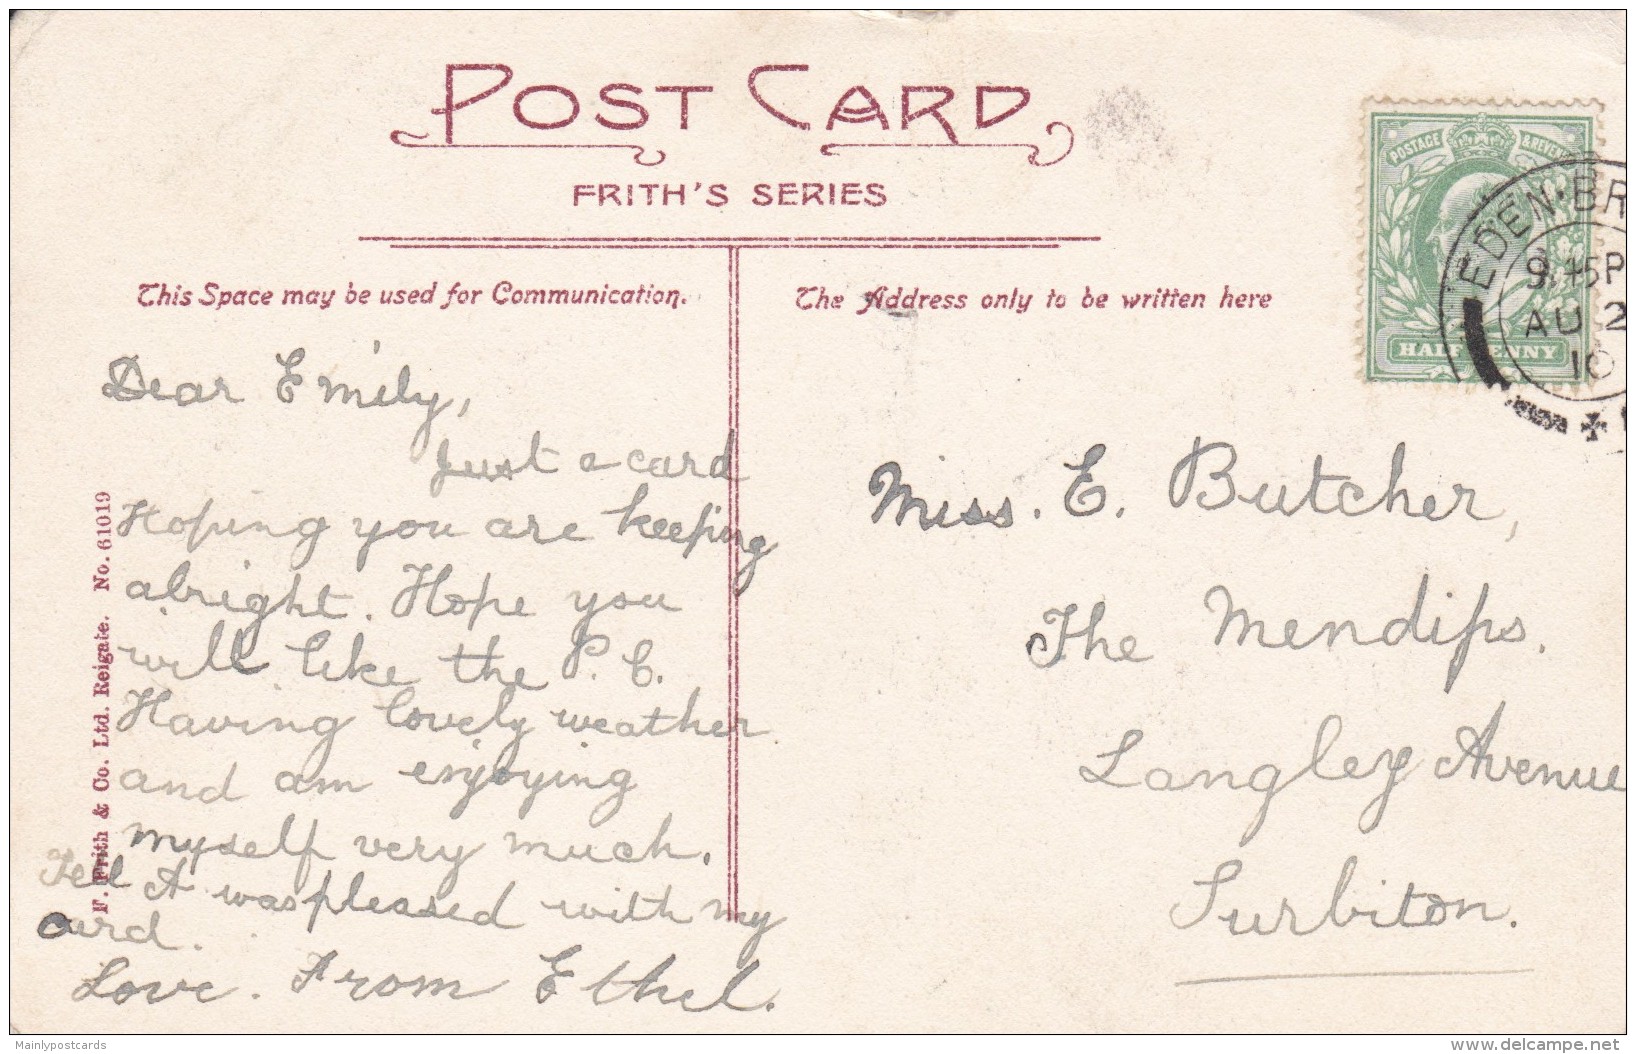 POST CARD
FRITH'S SERIES
This Space may be used for Communication.
The Address only to be written here
POSTAGE & REVEN
HALF PENNY
EDEN·BR
9.45P
AU 2
10
Dear Emily,
Just a card
Hoping you are keeping
alright. Hope you
will like the P.C.
Having lovely weather
and am enjoying
myself very much.
Tell A was pleased with my
card.
Love. From Ethel.
Miss. E. Butcher,
The Mendips.
Langley Avenue
Surbiton.
F. Frith & Co. Ltd. Reigate. No. 61019
Mainlypostcards
delcampe.net